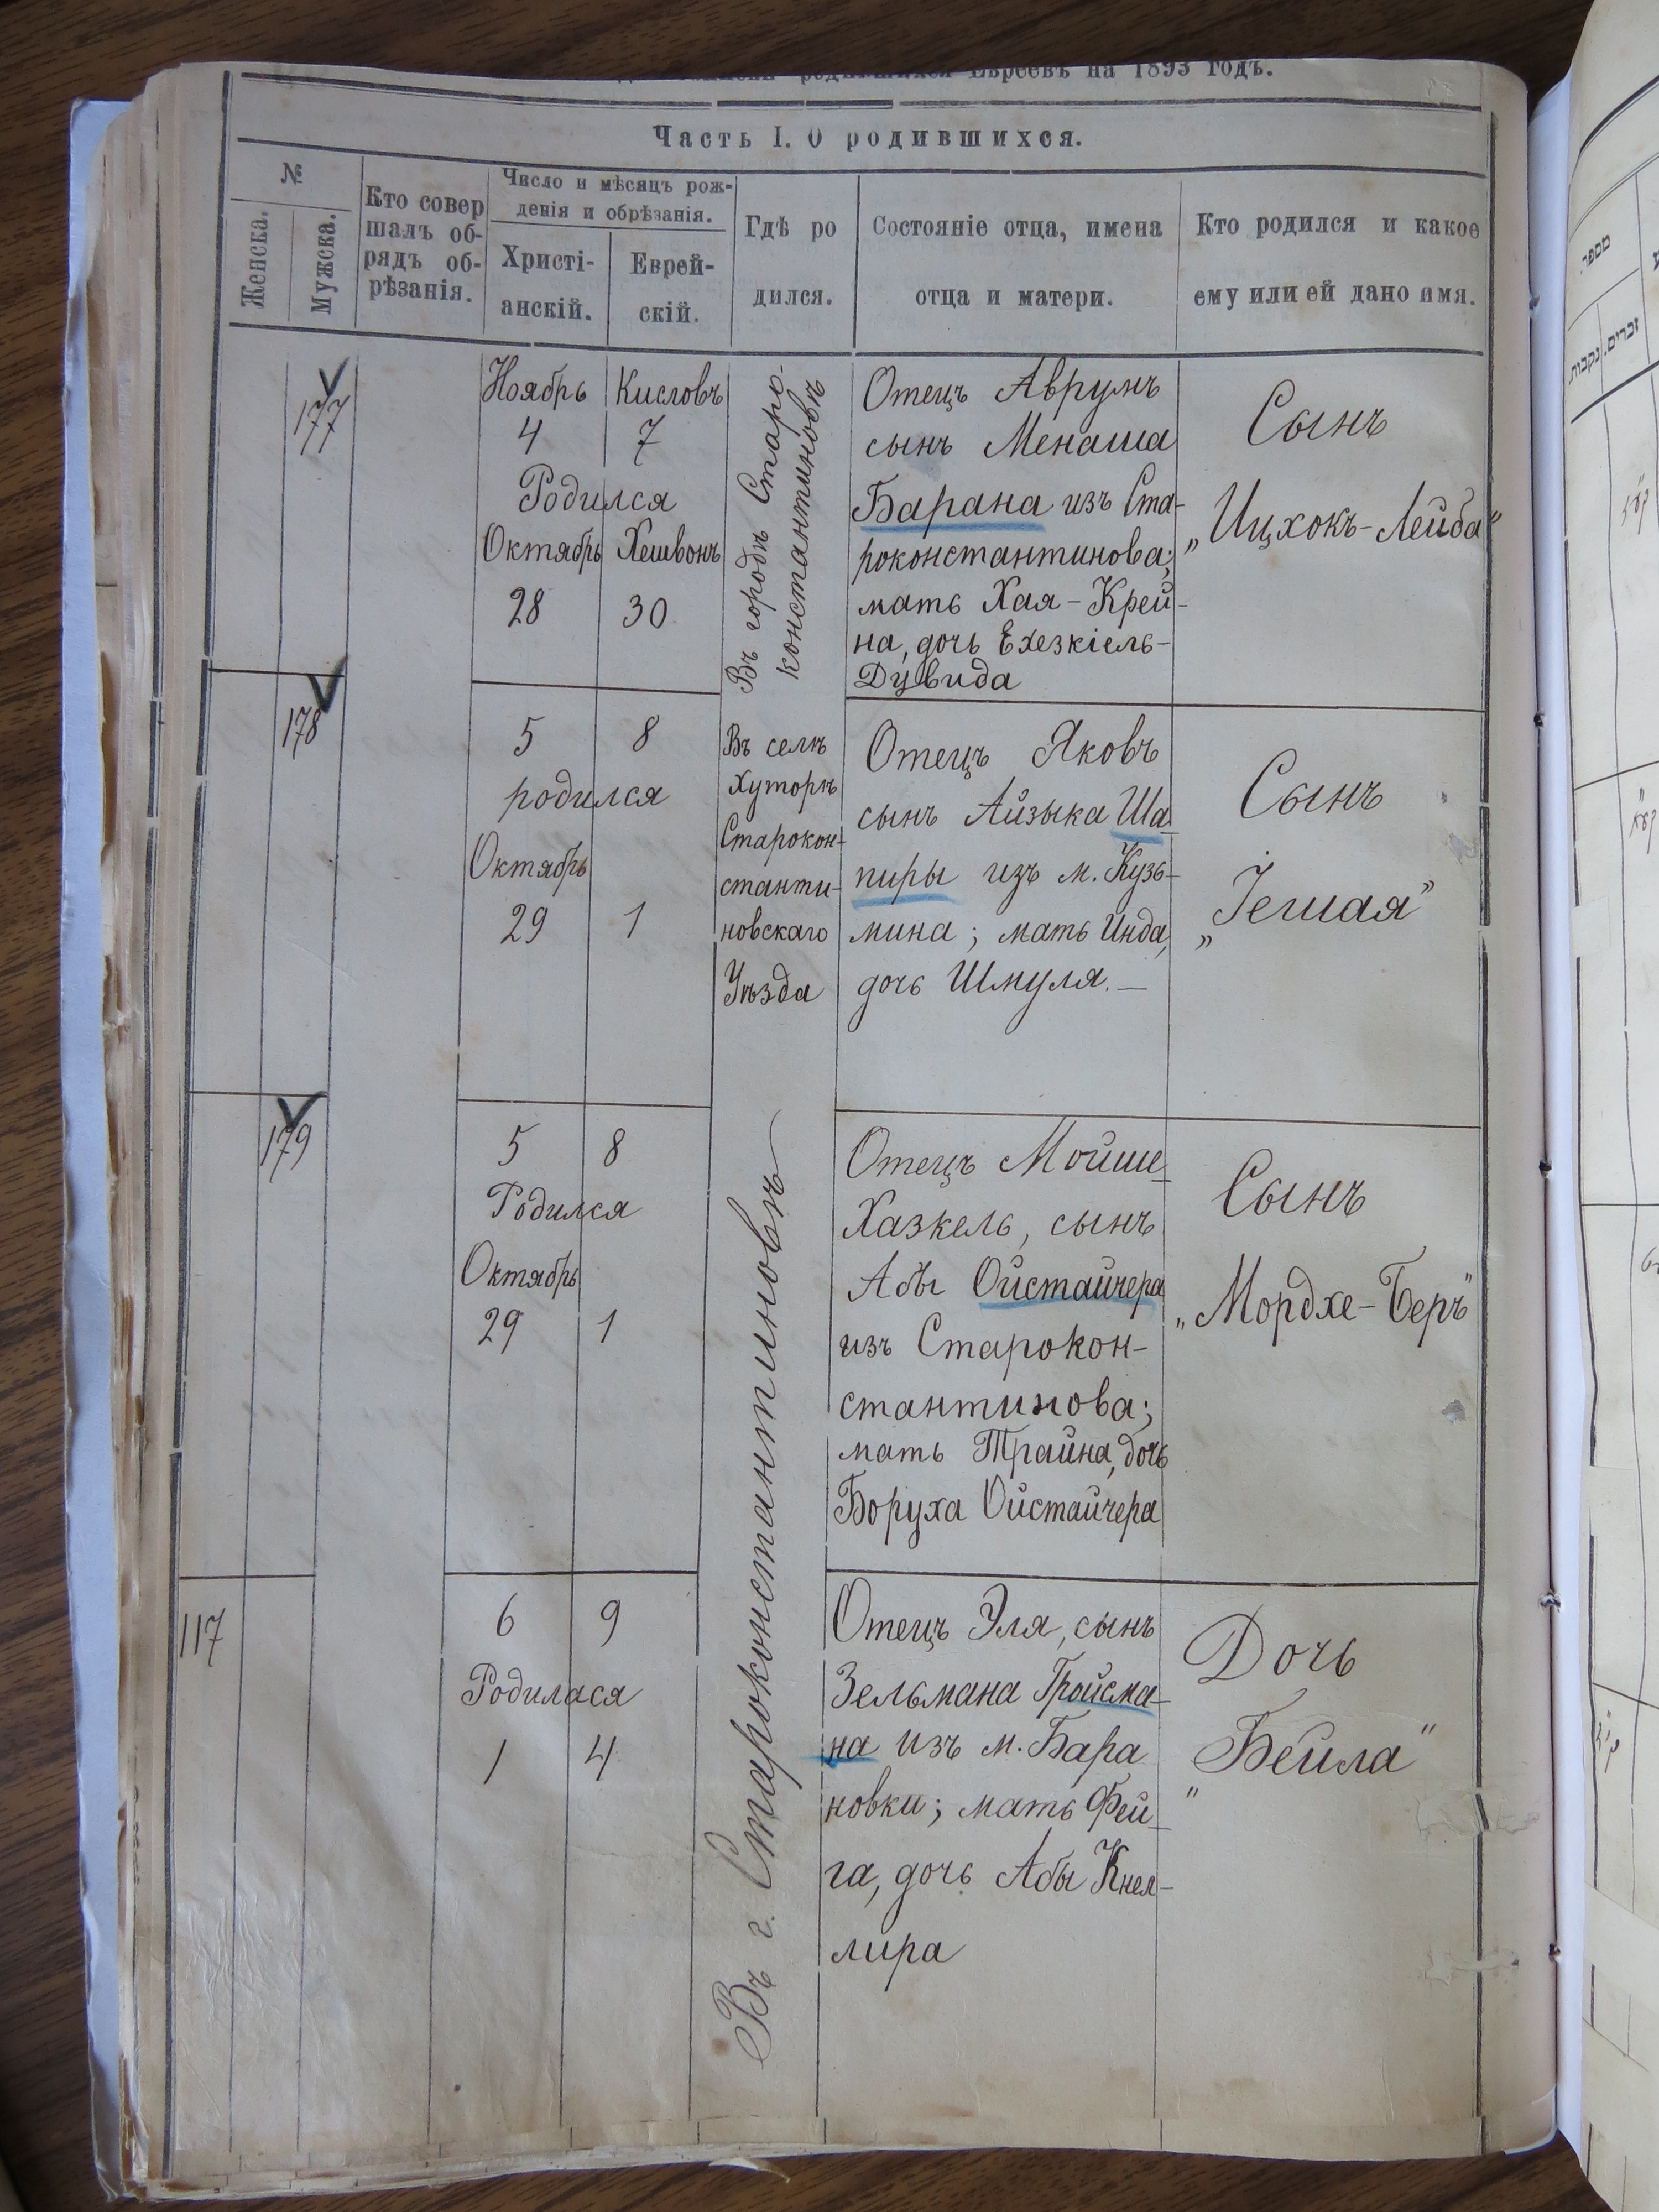 родившихся Евреевъ на 1893 годъ.
Часть I. О родившихся.
№
Женска.
Мужска.
Кто совер
шалъ об-
рядъ об-
рѣзанія.
Число и мѣсяцъ рож-
денія и обрѣзанія.
Христі-
анскій.
Еврей-
скій.
Гдѣ ро
дился.
Состояніе отца, имена
отца и матери.
Кто родился и какое
ему или ей дано имя.
177
Ноябрь Кисловъ
4 7
Родился
Октябрь Хешвонъ
28 30
Въ городѣ Старо-
константиновѣ
Отецъ Аврумъ
сынъ Менаша
Барана изъ Ста-
роконстантинова;
мать Хая-Крей-
на, дочь Ехезкіель-
Дувида
Сынъ
„Ицхокъ-Лейба"
178
5 8
родился
Октябрь
29 1
Въ селѣ
Хуторѣ
Старокон-
станти-
новскаго
Уѣзда
Отецъ Яковъ
сынъ Айзыка Ша-
пиры изъ м. Кузь-
мина; мать Инда,
дочь Шмуля. —
Сынъ
„Іешая"
179
5 8
Родился
Октябрь
29 1
Въ г. Староконстантиновѣ
Отецъ Мойше-
Хазкель, сынъ
Абы Ойстайчера
изъ Старокон-
стантинова;
мать Трайна, дочь
Боруха Ойстайчера
Сынъ
„Мордхе-Беръ"
117
6 9
Родилася
1 4
Отецъ Эля, сынъ
Зельмана Гройсма-
на изъ м. Бара
новки; мать Фей-
га, дочь Абы
лира
Дочь
„Бейла"
מספר
זכרים.
נקבות.